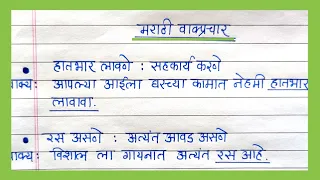 मराठी वाकप्रचार
हातभार लावणे : सहकार्य करणे
वाक्य: आपल्या आईला घरच्या कामात नेहमी हातभार
लावावा.
रस असणे : अत्यंत आवड असणे
वाक्य: विशाल ला गायनात अत्यंत रस आहे.